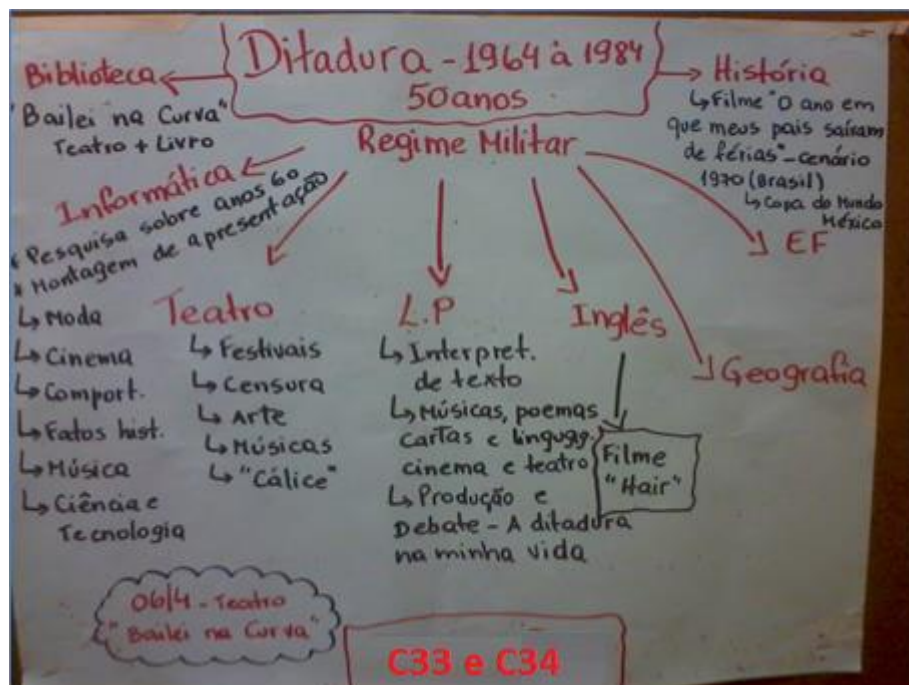 Ditadura - 1964 à 1984
50 anos
Regime Militar
Biblioteca
"Bailei na Curva"
Teatro + Livro
Informática
* Pesquisa sobre anos 60
* Montagem de apresentação
↳ Moda
↳ Cinema
↳ Comport.
↳ Fatos hist.
↳ Música
↳ Ciência e
Tecnologia
Teatro
↳ Festivais
↳ Censura
↳ Arte
↳ Músicas
↳ "Cálice"
L.P
↳ Interpret.
de texto
↳ Músicas, poemas
cartas e lingugg.
cinema e teatro
↳ Produção e
Debate - A ditadura
na minha vida
Inglês
Filme
"Hair"
História
↳ Filme "O ano em
que meus pais saíram
de férias" - cenário
1970 (Brasil)
↳ Copa do Mundo
México
EF
Geografia
06/4 - Teatro
"Bailei na Curva"
C33 e C34